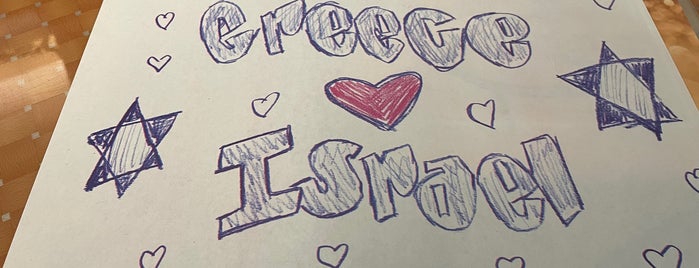 Greece
Israel